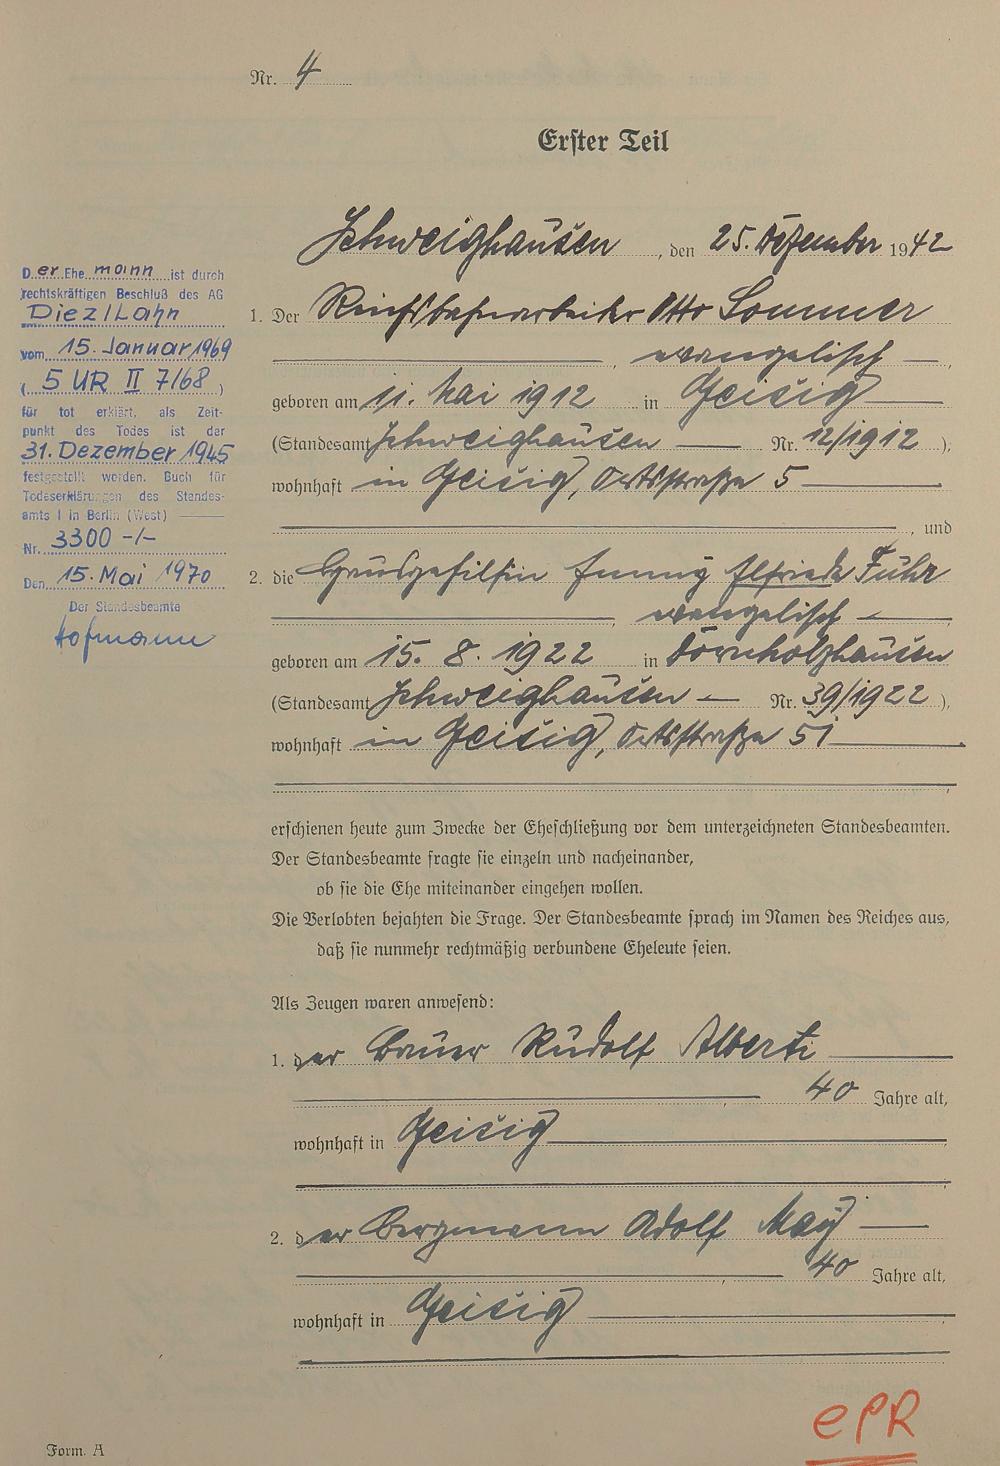 Nr. 4
Erster Teil
Schweighausen, den 25. Dezember 1942
1. Der Reichsbahnarbeiter Otto Sommer
, evangelisch,
geboren am 11. Mai 1912 in Geisig
(Standesamt Schweighausen Nr. 12/1912),
wohnhaft in Geisig, Ortsstraße 5
, und
2. die Hausgehilfin Emmy Elfriede Führ
, evangelisch,
geboren am 15. 8. 1922 in Dornholzhausen
(Standesamt Schweighausen Nr. 39/1922),
wohnhaft in Geisig, Ortsstraße 51
erschienen heute zum Zwecke der Eheschließung vor dem unterzeichneten Standesbeamten.
Der Standesbeamte fragte sie einzeln und nacheinander,
ob sie die Ehe miteinander eingehen wollen.
Die Verlobten bejahten die Frage. Der Standesbeamte sprach im Namen des Reiches aus,
daß sie nunmehr rechtmäßig verbundene Eheleute seien.
Als Zeugen waren anwesend:
1. der Bauer Rudolf Alberti
, 40 Jahre alt,
wohnhaft in Geisig
2. der Bergmann Adolf May
, 40 Jahre alt,
wohnhaft in Geisig
Der Ehemann ist durch
rechtskräftigen Beschluß des AG
Diez/Lahn
vom 15. Januar 1969
(5 UR II 7/68)
für tot erklärt, als Zeit-
punkt des Todes ist der
31. Dezember 1945
festgestellt worden. Buch für
Todeserklärungen des Standes-
amts I in Berlin (West)
Nr. 3300 -/-
Den 15. Mai 1970
Der Standesbeamte
Hofmann
ePR
Form. A